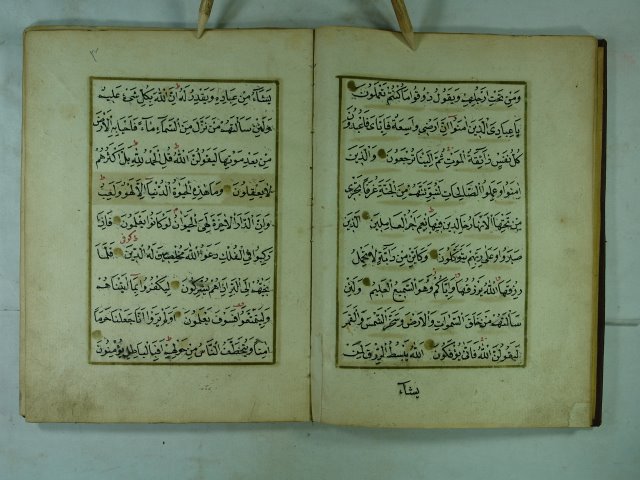 ومن تحت ارجلهم ويقول ذوقوا ما كنتم تعملون
يا عبادي الذين امنوا ان ارضي واسعة فاياي فاعبدون
كل نفس ذائقة الموت ثم الينا ترجعون والذين
امنوا وعملوا الصالحات لنبوئنهم من الجنة غرفا تجري
من تحتها الانهار خالدين فيها نعم اجر العاملين الذين
صبروا وعلى ربهم يتوكلون وكاين من دابة لا تحمل
رزقها الله يرزقها واياكم وهو السميع العليم ولئن
سالتهم من خلق السموات والارض وسخر الشمس والقمر
ليقولن الله فانى يؤفكون الله يبسط الرزق لمن
يشاء
يشاء من عباده ويقدر له ان الله بكل شئ عليم
ولئن سالتهم من نزل من السماء ماء فاحيا به الارض
من بعد موتها ليقولن الله قل الحمد لله بل اكثرهم
لا يعقلون وما هذه الحيوة الدنيا الا لهو ولعب
وان الدار الاخرة لهي الحيوان لو كانوا يعلمون فاذا
ركبوا في الفلك دعوا الله مخلصين له الدين فلما
نجيهم الى البر اذا هم يشركون ليكفروا بما اتيناهم
وليتمتعوا فسوف يعلمون اولم يروا انا جعلنا حرما
امنا ويتخطف الناس من حولهم افبالباطل يؤمنون